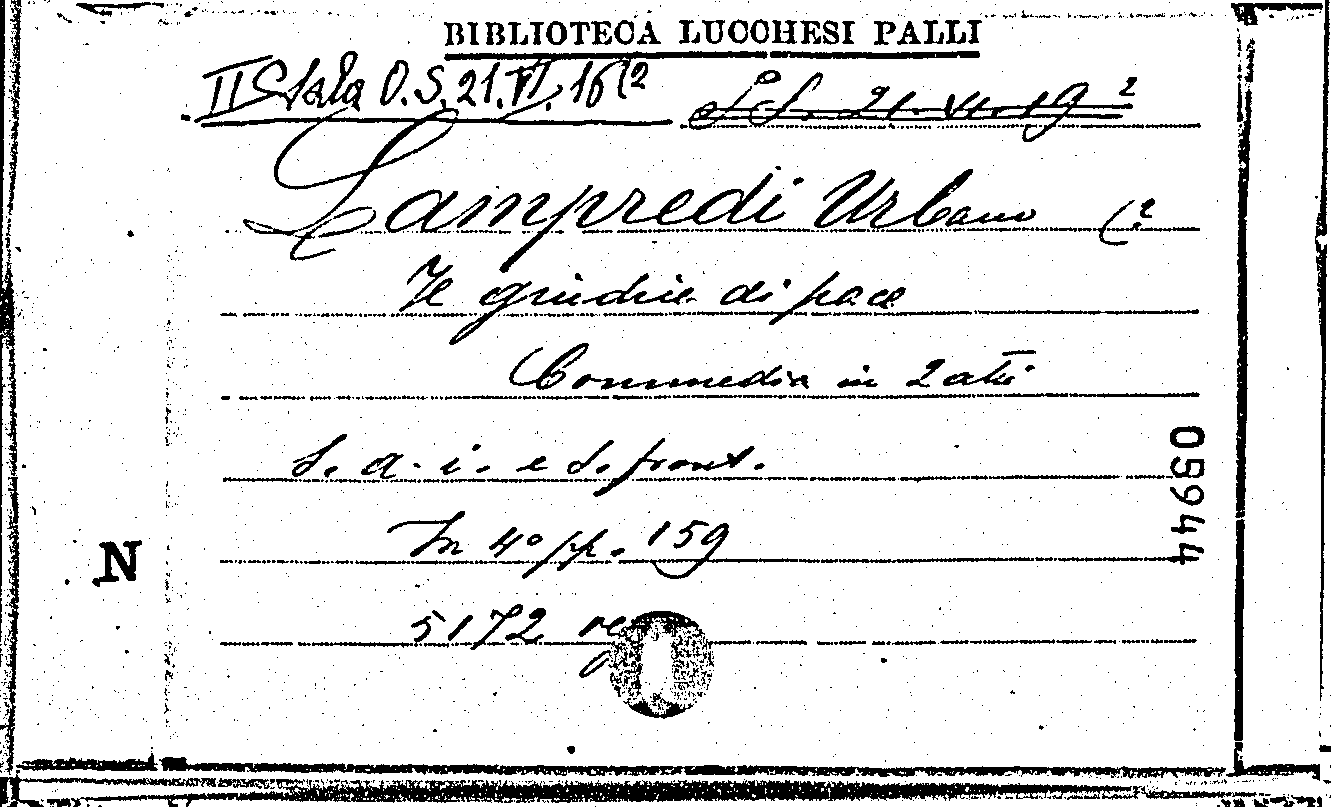 BIBLIOTECA LUCCHESI PALLI
II Sala O.S. 21. VI. 16(2
S.S. 21. VI. 19 2
Lampredi Urbano (2
Il giudice di pace
Commedia in 2 atti
S. a. i. e s. front.
In 4º pp. 159
05944
N
5172 reg